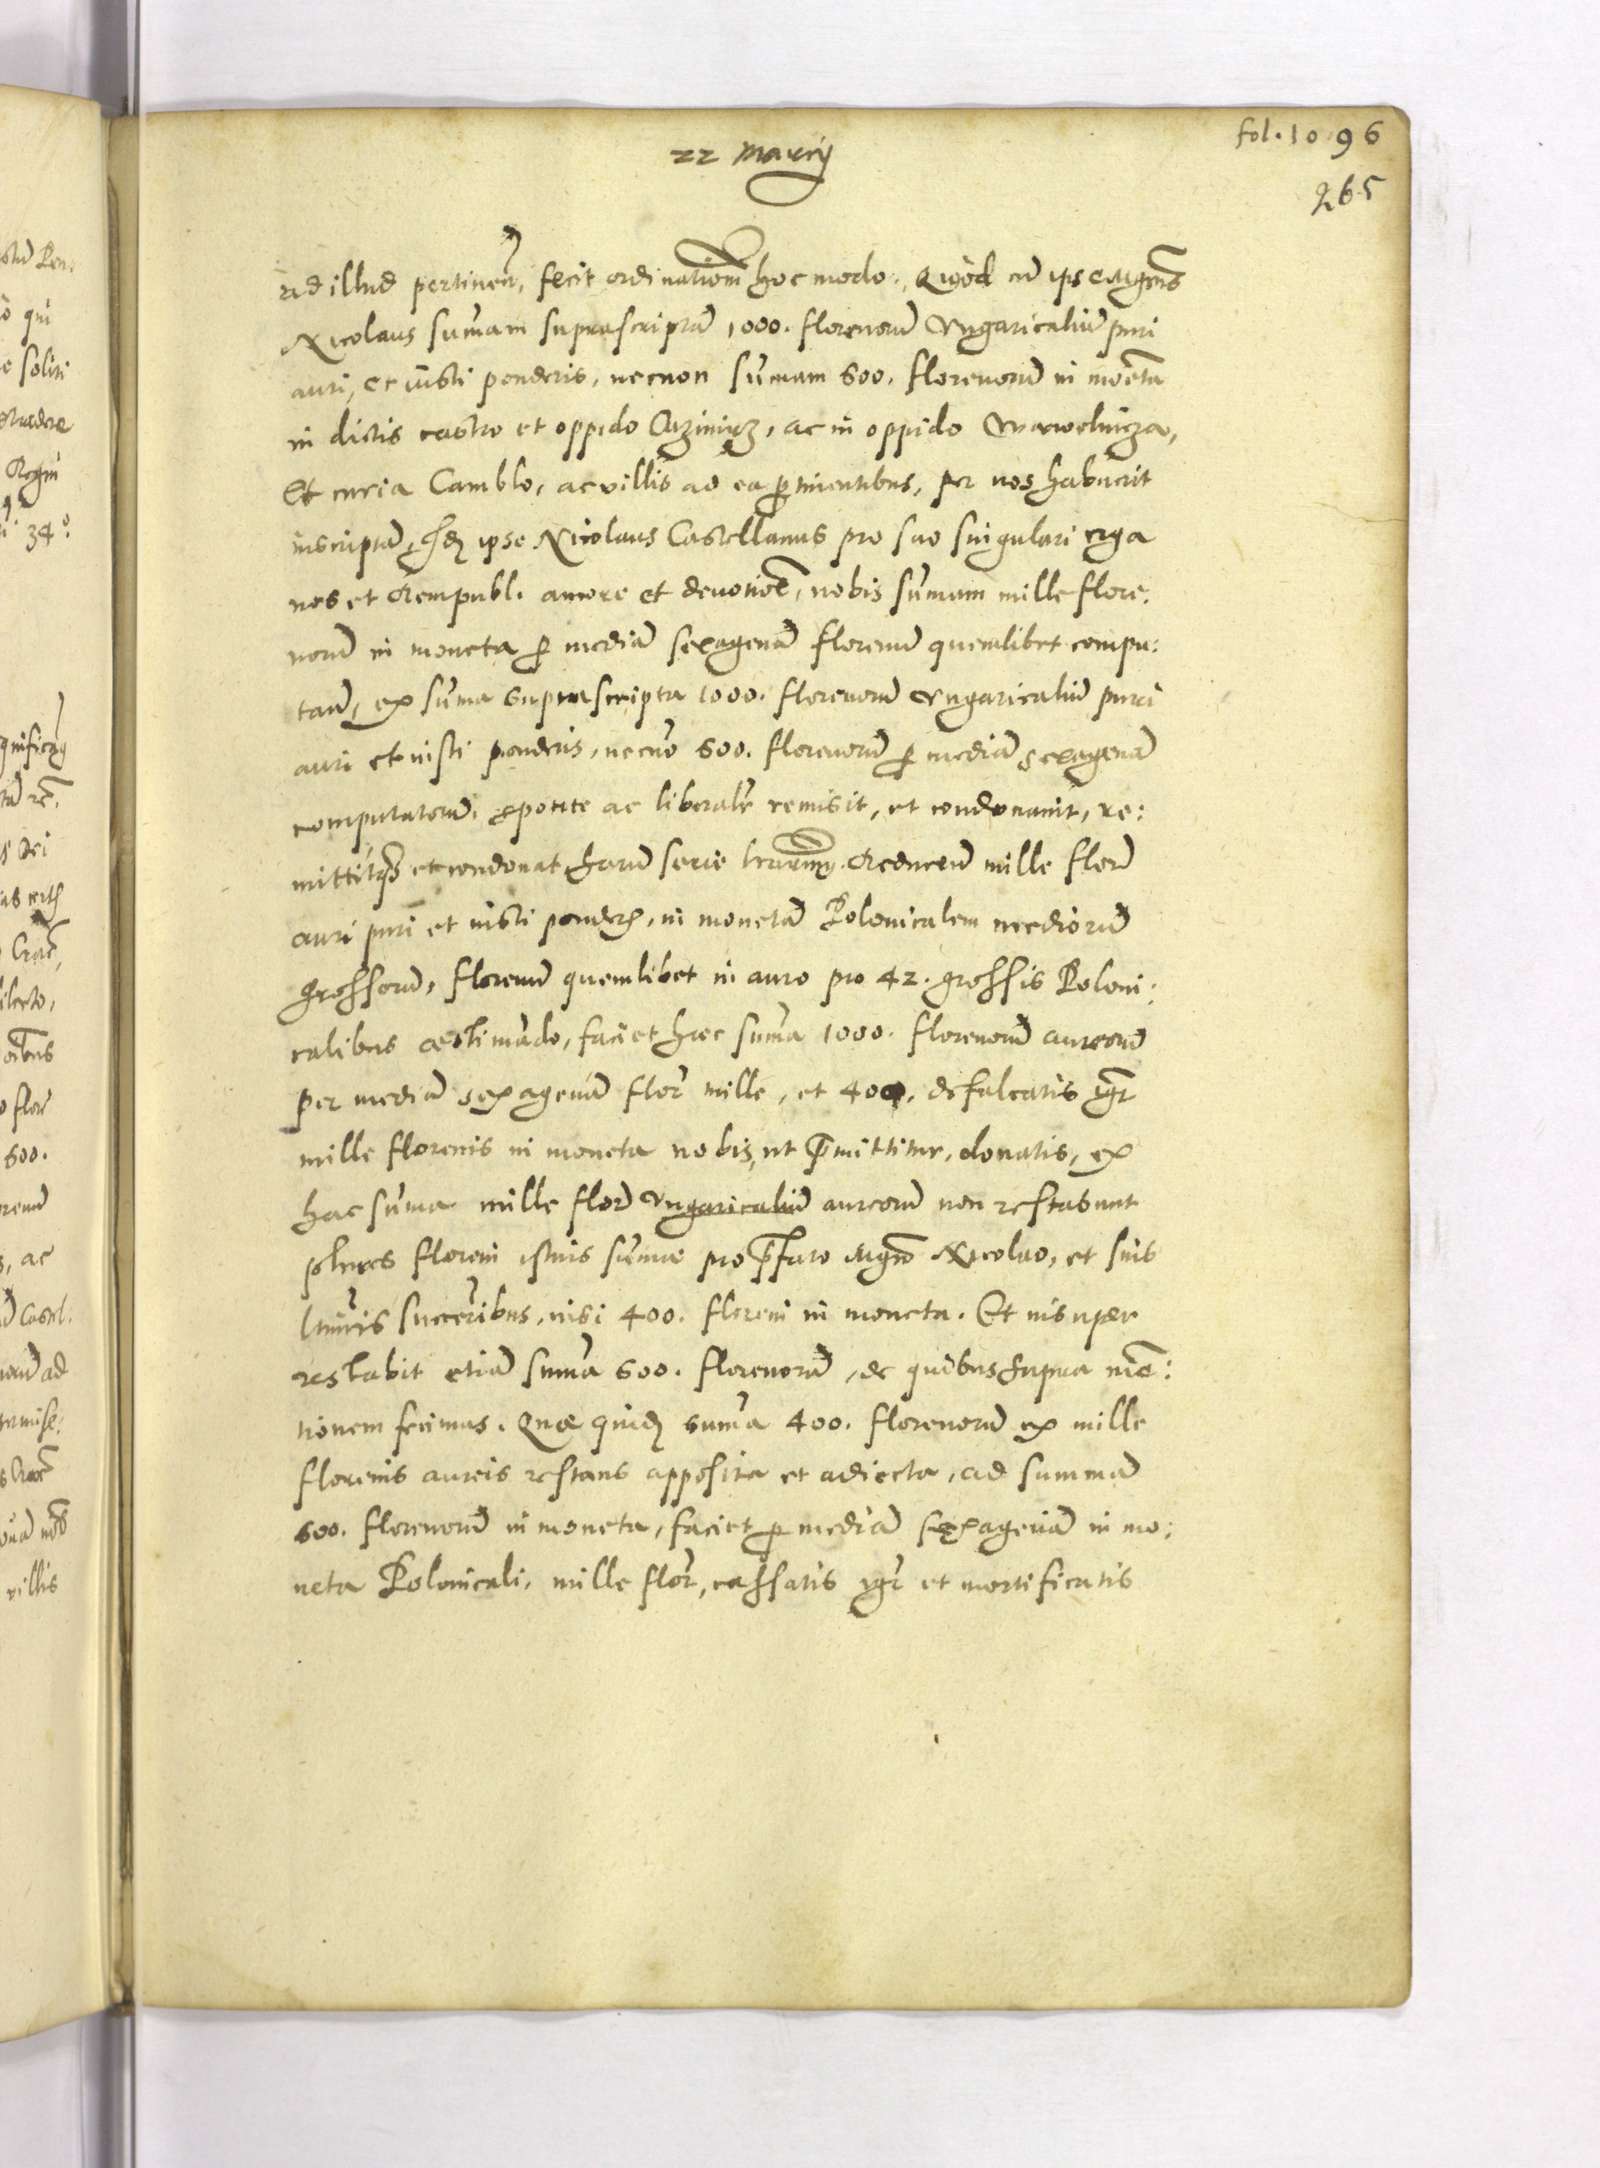 fol. 1096
265
22 Marcij
ad illud pertineñ, fecit ordinationem hoc modo. Quod cũ ipse Mgcus
Nicolaus sumam suprascriptã 1000. florenorũ Vngaricaliũ puri
auri, et iusti ponderis, necnon sumam 600. florenorũ in moneta
in dictis castro et oppido Cazimirz, ac in oppido Wawelnicza,
Et curia Camblo, ac villis ad ea ptinentibus, per nos habuerit
inscriptã, ipse Nicolaus Castellanus pro suo singulari erga
nos et Rempubl. amore et deuotioe, nobis sumam mille flore:
norũ in moneta p mediã sexagenã florenũ quemlibet compu:
tañ, ex suma suprascripta 1000. florenorũ Vngaricaliũ puri
auri et iusti ponderis, necnõ 600. florenorũ p mediã sexagenã
computatorũ, spõte ac liberalr remisit, et condonauit, re:
mittitqz et condonat harũ serie lrarum. Reducendo mille florẽ
auri puri et iusti ponderis, in monetã Polonicalem mediorũ
grossorũ, florenũ quemlibet in auro pro 42. grossis Poloni:
calibus æstimãdo, faciet hæc suma 1000. florenorũ aureorũ
per mediã sexagenã flor mille, et 400. defalcatis igr
mille florenis in moneta nobis, ut pmittitur, donatis, ex
hac suma mille florẽ Vngaricaliũ aureorũ non restabunt
plures floreni istius sumæ pro pfato Mgco Nicolao, et suis
ltimis succribus, nisi 400. floreni in moneta. Et insuper
restabit etiã suma 600. florenorũ, de quibus supra mẽ:
tionem fecimus. Quæ quidẽ suma 400. florenorũ ex mille
florenis aureis restans apposita et adiecta, ad summã
600. florenorũ in moneta, faciet p mediã sexagenã in mo:
neta Polonicali, mille flor, cassatis igr et mortificatis